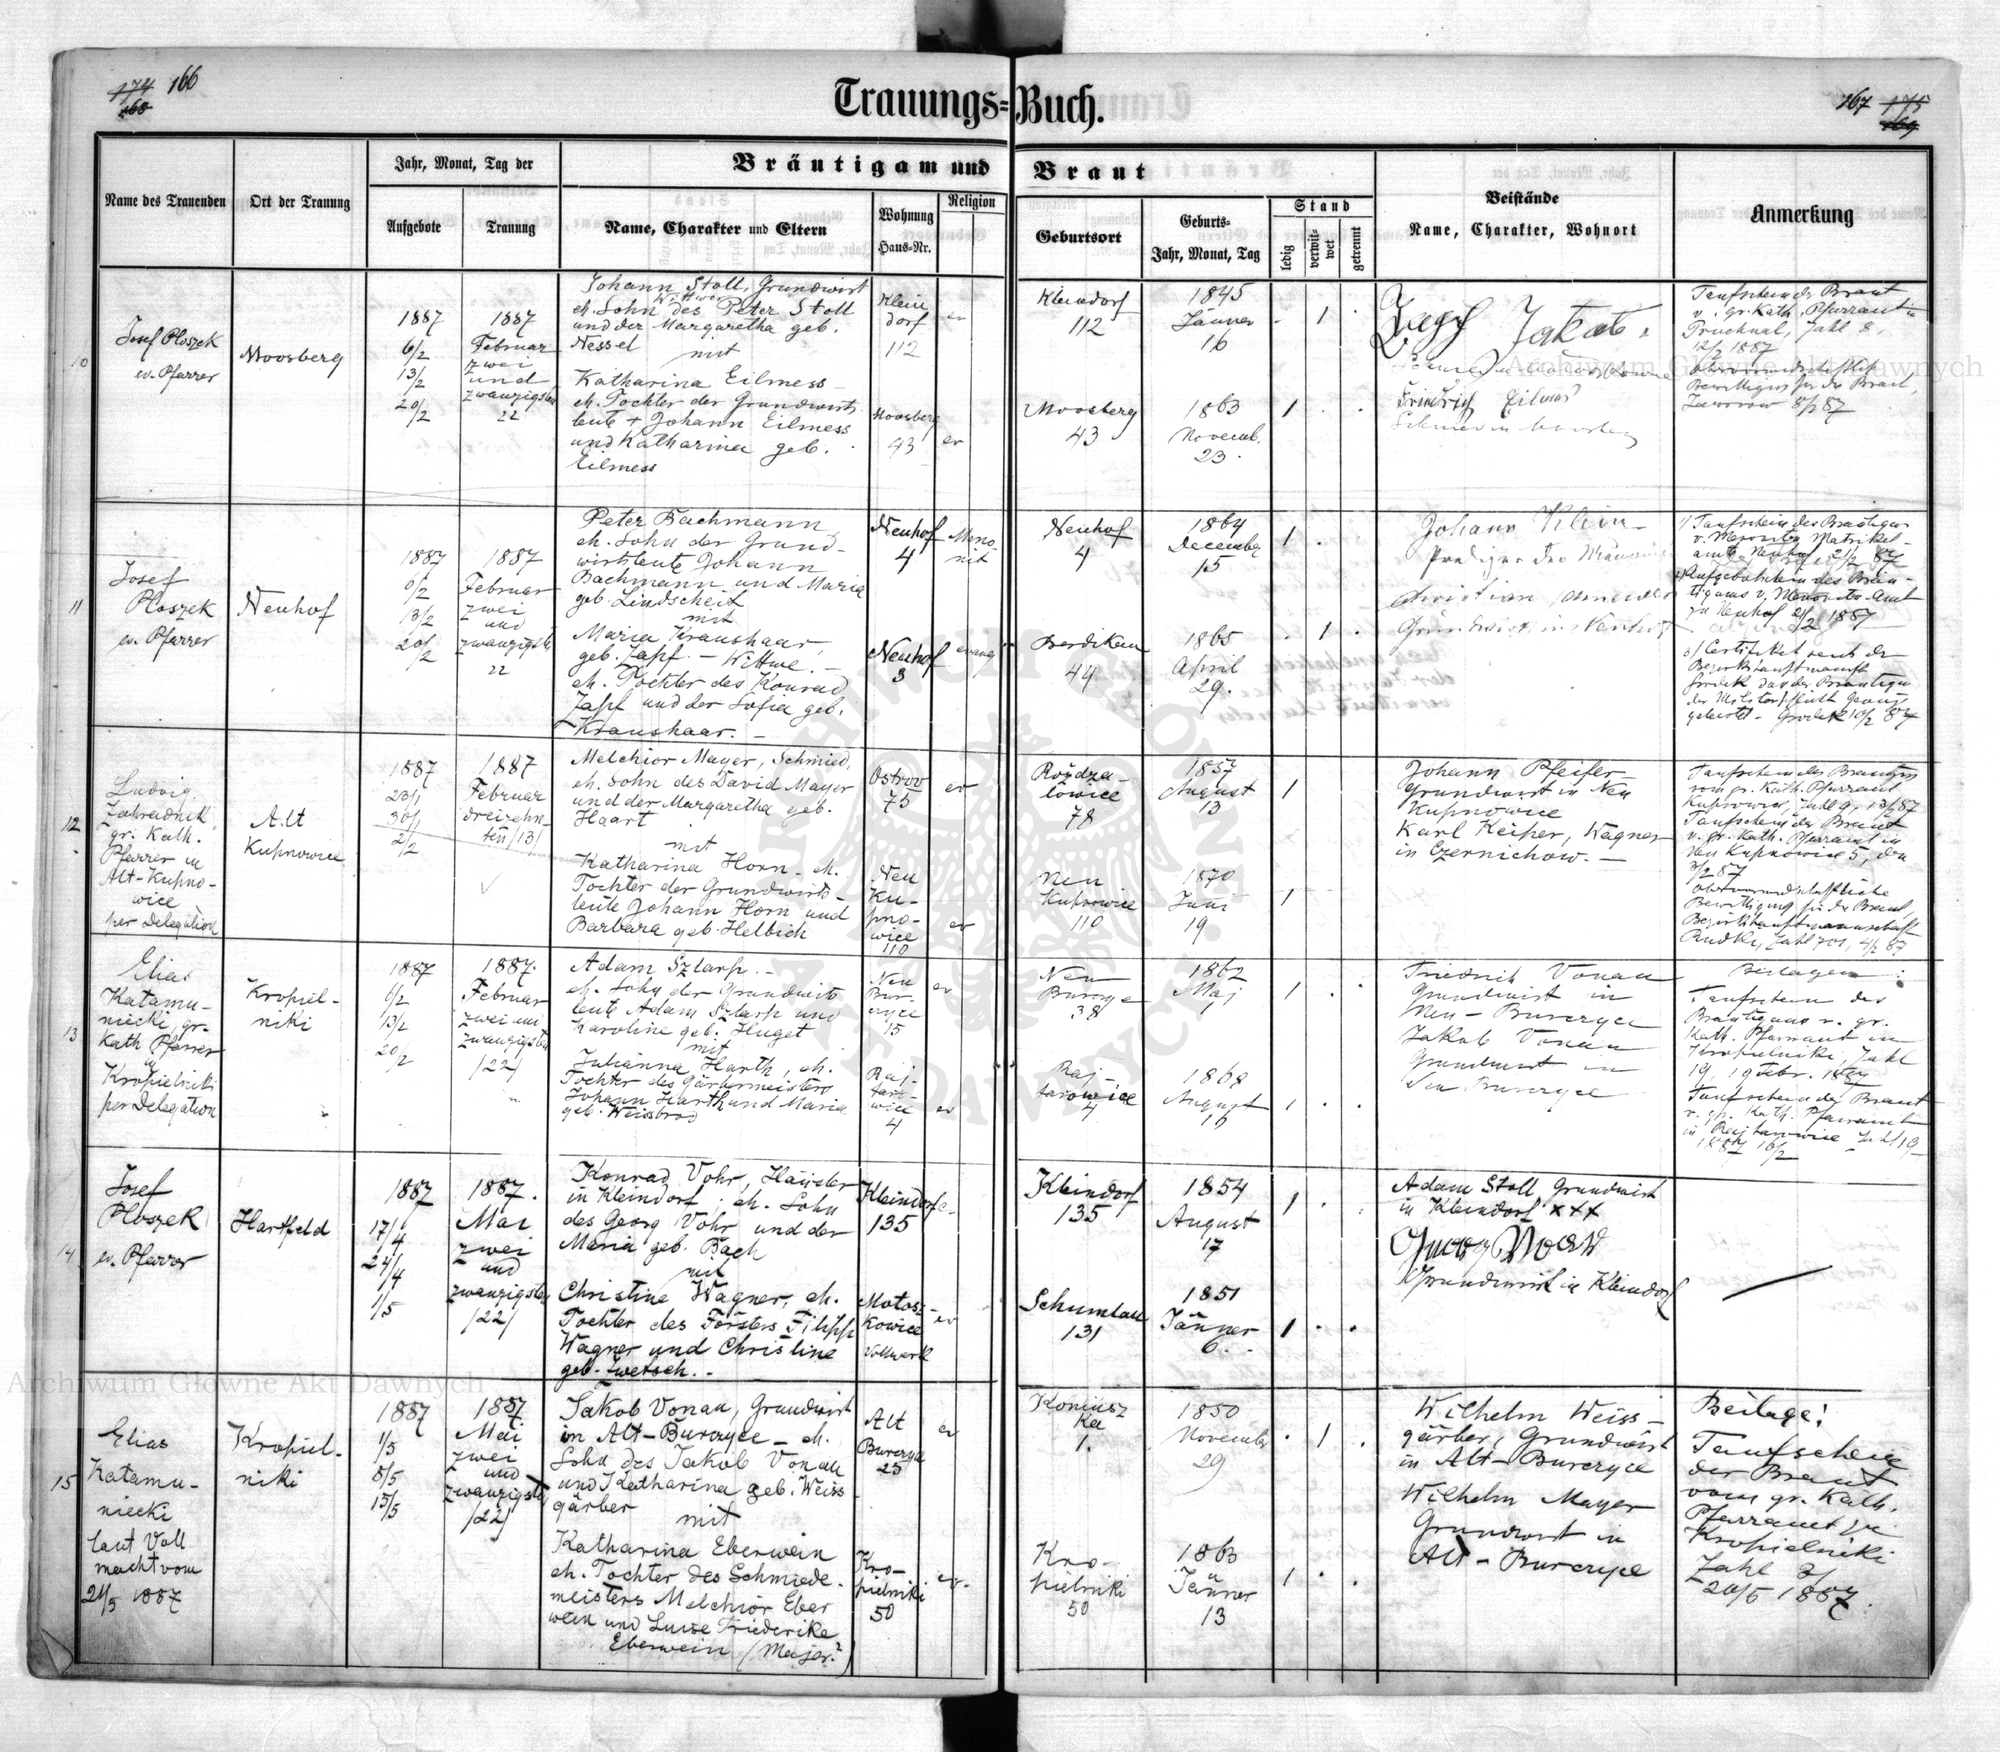 174 166
168
Trauungs-Buch.
167 175
169
Name des Trauenden
Ort der Trauung
Jahr, Monat, Tag der
Aufgebote
Trauung
Bräutigam und Braut
Name, Charakter und Eltern
Wohnung
Haus-Nr.
Religion
Geburtsort
Geburts-
Jahr, Monat, Tag
Stand
ledig
verwit-
wet
getrennt
Beistände
Name, Charakter, Wohnort
Anmerkung
10
Josef Ploszek
ev. Pfarrer
Moosberg
1887
6/2
13/2
20/2
1887
Februar
zwei
und
zwanzigsten
22
Johann Stoll, Grundwirt
Wittwer
eh. Sohn des Peter Stoll
und der Margaretha geb.
Nessel
mit
Katharina Eilmess
eh. Tochter der Grundwirts
leute + Johann Eilmess
und Katharina geb.
Eilmess
Klein
dorf
112
ev
Moosberg
43
ev
Kleindorf
112
1845
Jänner
16
Moosberg
43
1863
Novemb.
23.
Jakob
Friedrich Eilmes
Taufschein der Braut
v. gr. Kath. Pfarramt in
Zahl 8,
12/2 1887
Obervormundschaftliche
Bewilligung für die Braut,
11
Josef
Ploszek
ev. Pfarrer
Neuhof
1887
6/2
13/2
20/2
1887
Februar
zwei
und
zwanzigste
22
Peter Bachmann
eh. Sohn der Grund-
wirtsleute Johann
Bachmann und Maria
geb. Lindscheit
mit
Maria Kraushaar
geb. Zapf. – Wittwe. –
eh. Tochter des Konrad
Zapf und der Sofia geb.
Kraushaar. –
Neuhof
4
Meno
nit
Neuhof
3
evang
Neuhof
4
1864
December
15
Berdikau
44
1865
April
29.
Johann Klein
Prediger der
Christian
Grundwirt in Neuhof
1/ Taufschein des Bräutigams
v. Menoniten Matrikel-
amte Neuhof 21/2 87
2/ Aufgebotschein des Bräu-
tigams v. Menoniten-Amt
zu Neuhof 21/2 1887
3/ Certifikat seitens der
Bezirkshauptmannschaft
Grodek das der Bräutigam
der Militärpflicht Genüge
geleistet – Grodek 10/2 87
12
Ludvig
Zahradnik
gr. Kath.
Pfarrer in
Alt-Kupno-
wice
per Delegation
Alt
Kupnowice
1887
23/1
30/1
2/2
1887
Februar
dreizehn-
ten /13/
Melchior Mayer, Schmied,
eh. Sohn des David Mayer
und der Margaretha geb.
Haart
mit
Katharina Horn – eh.
Tochter der Grundwirts-
leute Johann Horn und
Barbara geb. Helbich
Ostrow
75
ev
Neu
Ku-
pno-
wice
110
ev
Rożdża-
lowice
78
1857
August
13
Neu
Kupnowice
110
1870
Juni
19
Johann Pfeifer –
Grundwirt in Neu
Kupnowice
Karl Keiper, Wagner
in Czernichow. –
Taufschein des Bräutigams
vom gr. Kath. Pfarramt
Kupnowice, Zahl 9, 13/2 87
Taufschein der Braut
v. gr. Kath. Pfarramt in
Neu Kupnowice 5, den
2/2 87
Obervormundschaftliche
Bewilligung für die Braut
Bezirkshauptmannschaft
Rudki, Zahl 701, 4/2 87
13
Elias
Katamu-
niecki, gr.
Kath Pfarrer
in
Kropielniki
per Delegation
Kropiel-
niki
1887
6/2
13/2
20/2
1887.
Februar
zwei und
zwanzigsten
/22/
Adam Szlarp –
eh. Sohn der Grundwirts
leute Adam Szlarp und
Karoline geb. Huget
mit
Julianna Harth, eh.
Tochter des Gärbermeisters
Johann Harth und Maria
geb. Weissbrod
Neu
Bur-
czyce
15
ev
Raj-
taro-
wice
4
ev
Neu
Burczyce
38
1862
Maj
1
Raj-
tarowice
4
1868
August
16
Friedrich Vonau
Grundwirt in
Neu-Burczyce
Jakob Vonau
Grundwirt in
Neu Burczyce
Beilagen:
Taufschein des
Bräutigams v. gr.
Kath. Pfarramt in
Kropielniki, Zahl
19, 19 Febr. 1887
Taufschein der Braut
v. gr. Kath. Pfarramt
in Rajtarowice Zahl 19
1887 16/2
14
Josef
Ploszek
ev. Pfarrer
Hartfeld
1887
17/4
24/4
1/5
1887.
Mai
zwei
und
zwanzigsten
/22/
Konrad Vohr, Häusler
in Kleindorf; eh. Sohn
des Georg Vohr und der
Maria geb. Bach
mit
Christine Wagner, eh.
Tochter des Försters Filipp
Wagner und Christine
geb. Zwetsch. –
Kleindorf
135
Motosz-
kowice
Vollwerk
ev
Kleindorf
135
1854
August
17
Schumlau
131
1851
Jänner
6.
Adam Stoll Grundwirt
in Kleindorf xxx
Grundwirt in Kleindorf
15
Elias
Katamu-
niecki
laut Voll
macht vom
21/5 1887
Kropiel-
niki
1887
1/5
8/5
15/5
1887
Mai
zwei
und
zwanzigsten
/22/
Jakob Vonau, Grundwirt
in Alt-Burczyce – eh.
Sohn des Jakob Vonau
und Katharina geb. Weiss
gärber
mit
Katharina Eberwein
eh. Tochter des Schmiede-
meisters Melchior Eber
wein und Luise Friederike
Eberwein (Majer?)
Alt
Burczyce
25
ev
Kro-
pielniki
50
ev.
Koniusz
ka
1.
1850
November
29
Kro-
pielniki
50
1863
Jänner
13
Wilhelm Weiss-
gärber, Grundwirt
in Alt-Burczyce
Wilhelm Mayer
Grundwirt in
Alt-Burczyce
Beilage:
Taufschein
der Braut
vom gr. Kath.
Pfarramt in
Kropielniki
Zahl
20/5 1887.
Archiwum Główne Akt Dawnych
Archiwum Główne Akt Dawnych
ARCHIWUM GŁÓWNE AKT DAWNYCH